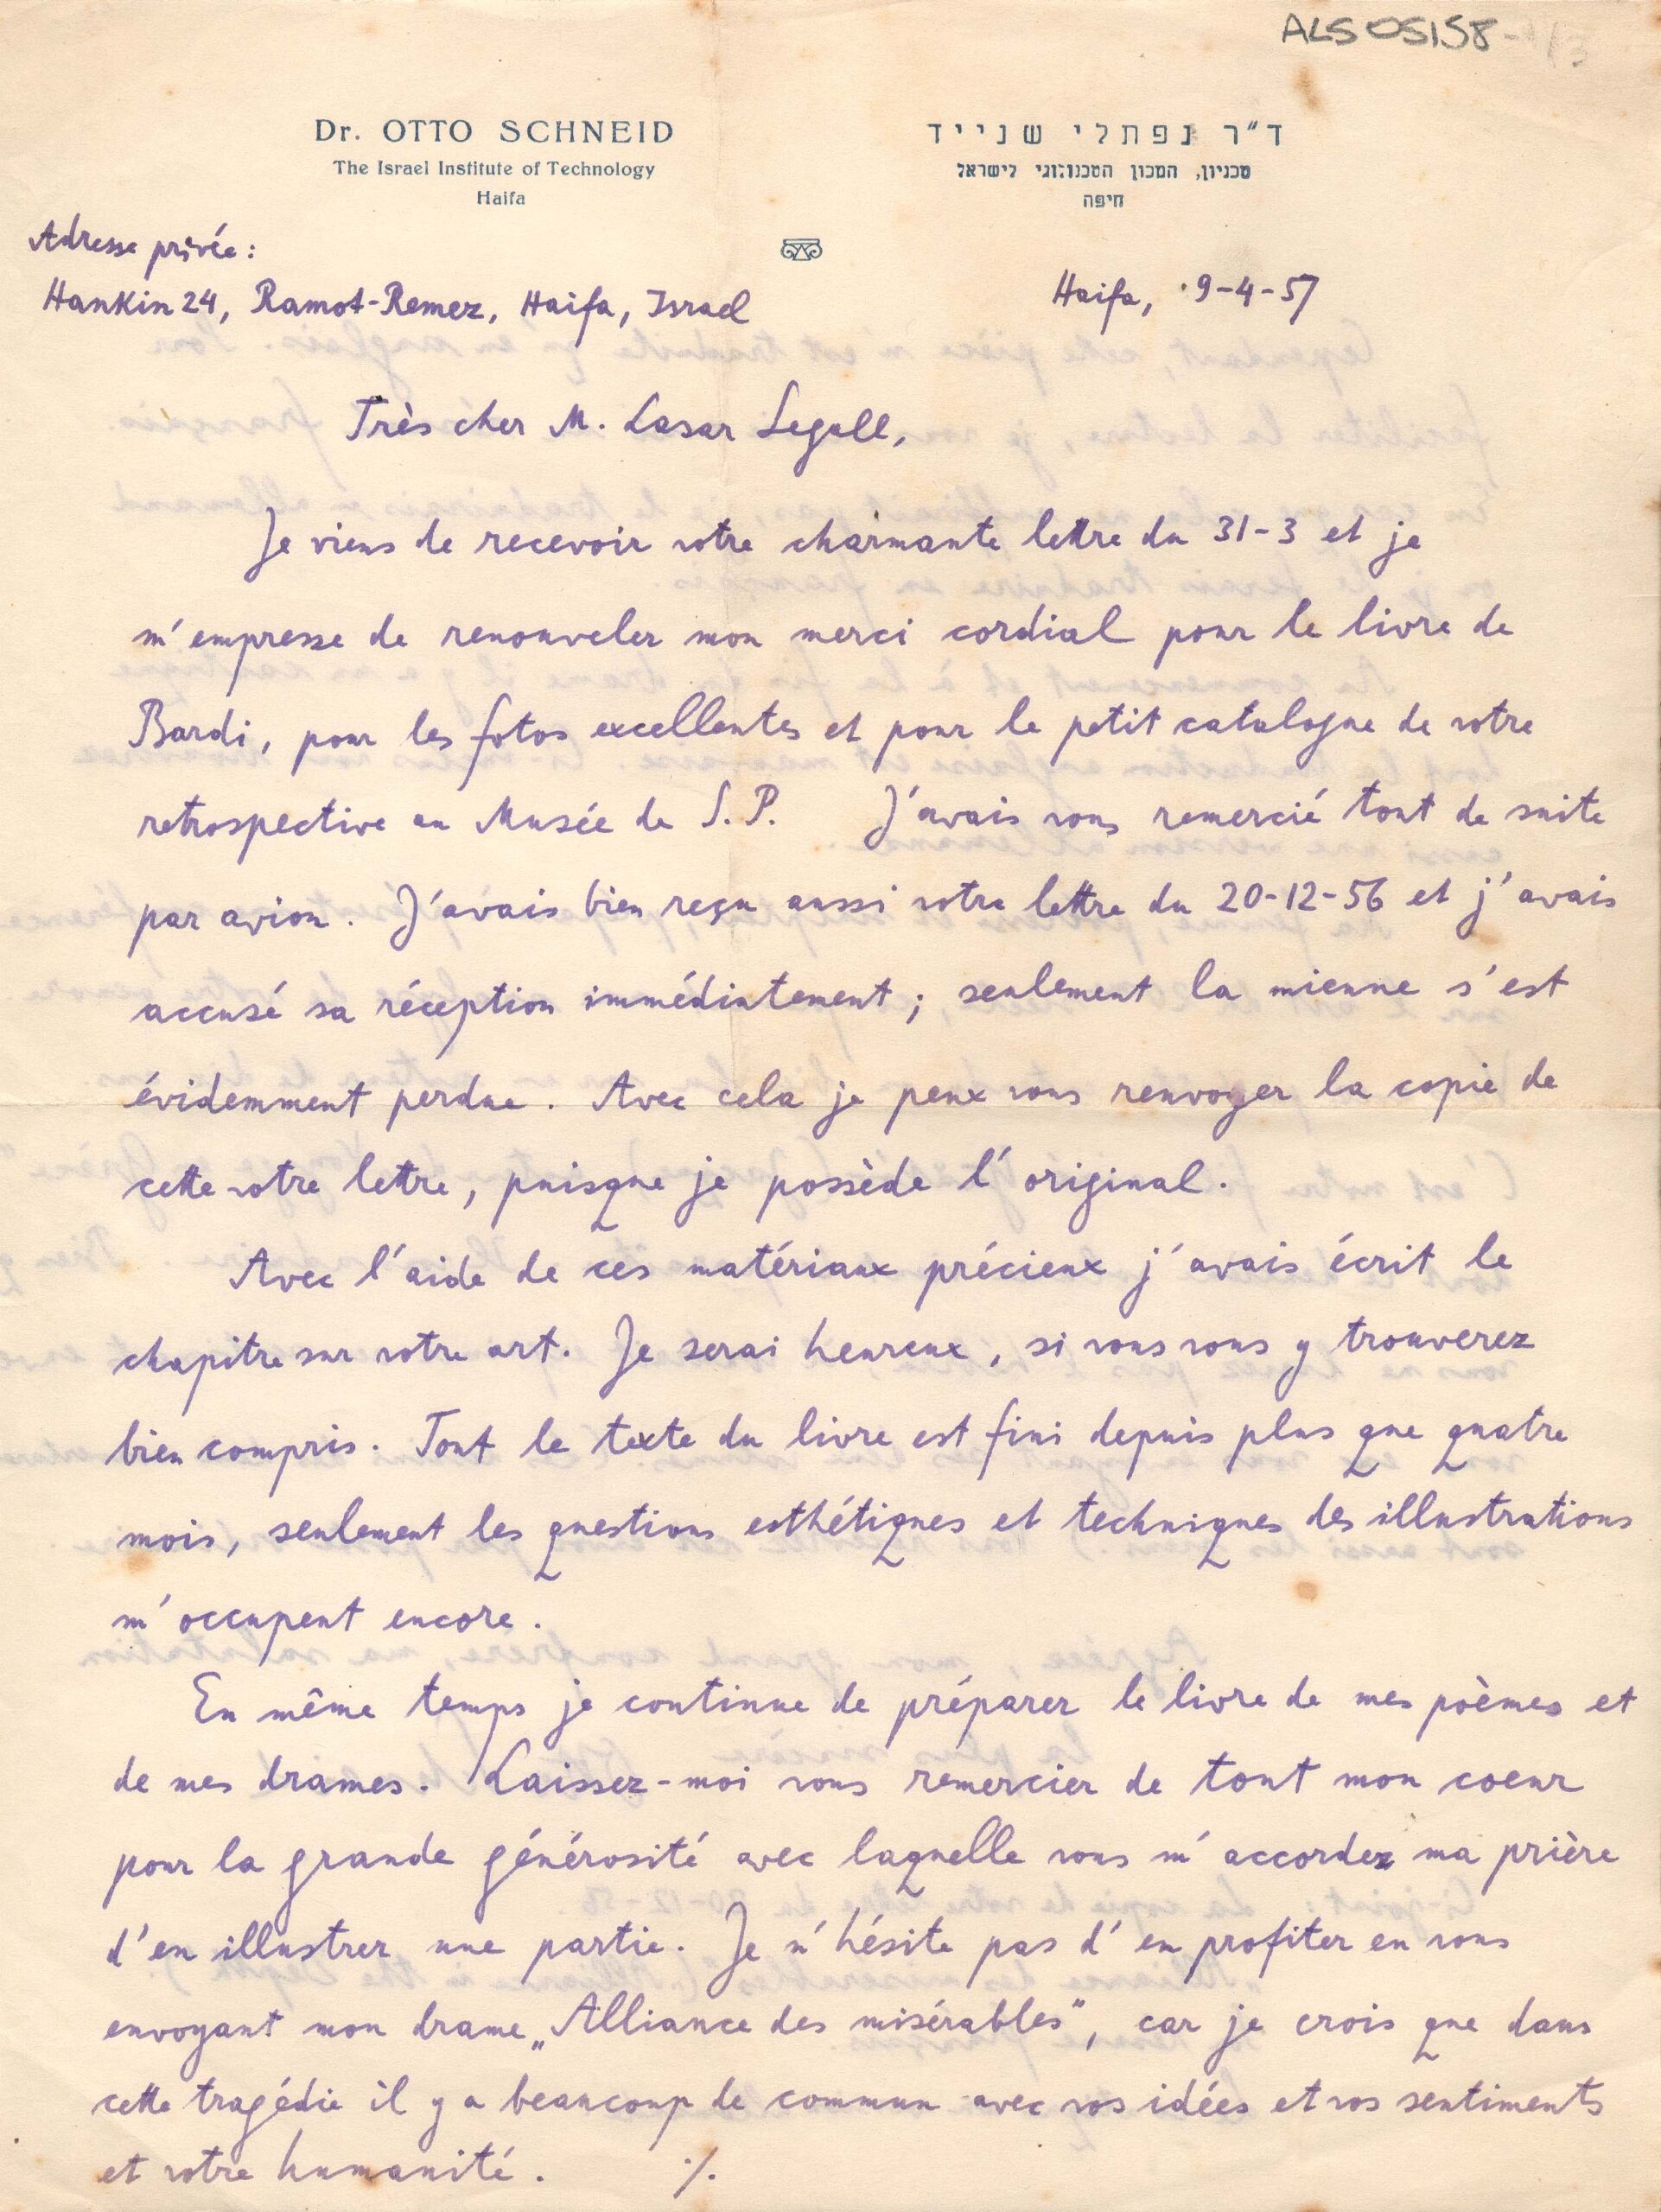 ALS 05158-1/3
Dr. OTTO SCHNEID
The Israel Institute of Technology
Haifa
ד״ר נפתלי שנייד
טכניון, המכון הטכנולוגי לישראל
חיפה
Adresse privée:
Hankin 24, Ramot-Remez, Haifa, Israel
Haifa, 9-4-57
Très cher M. Lasar Segall,
Je viens de recevoir votre charmante lettre du 31-3 et je
m'empresse de renouveler mon merci cordial pour le livre de
Bardi, pour les fotos excellentes et pour le petit catalogue de votre
retrospective au Musée de S. P. J'avais vous remercié tout de suite
par avion. J'avais bien reçu aussi votre lettre du 20-12-56 et j'avais
accusé sa réception immédiatement; seulement la mienne s'est
évidemment perdue. Avec cela je peux vous renvoyer la copie de
cette votre lettre, puisque je possède l'original.
Avec l'aide de ces matériaux précieux j'avais écrit le
chapitre sur votre art. Je serai heureux, si vous vous y trouverez
bien compris. Tout le texte du livre est fini depuis plus que quatre
mois, seulement les questions esthétiques et techniques des illustrations
m'occupent encore.
En même temps je continue de préparer le livre de mes poèmes et
de mes drames. Laissez-moi vous remercier de tout mon coeur
pour la grande générosité avec laquelle vous m'accordez ma prière
d'en illustrer une partie. Je n'hésite pas d'en profiter en vous
envoyant mon drame „Alliance des misérables", car je crois que dans
cette tragédie il y a beaucoup de commun avec vos idées et vos sentiments
et votre humanité. ./.